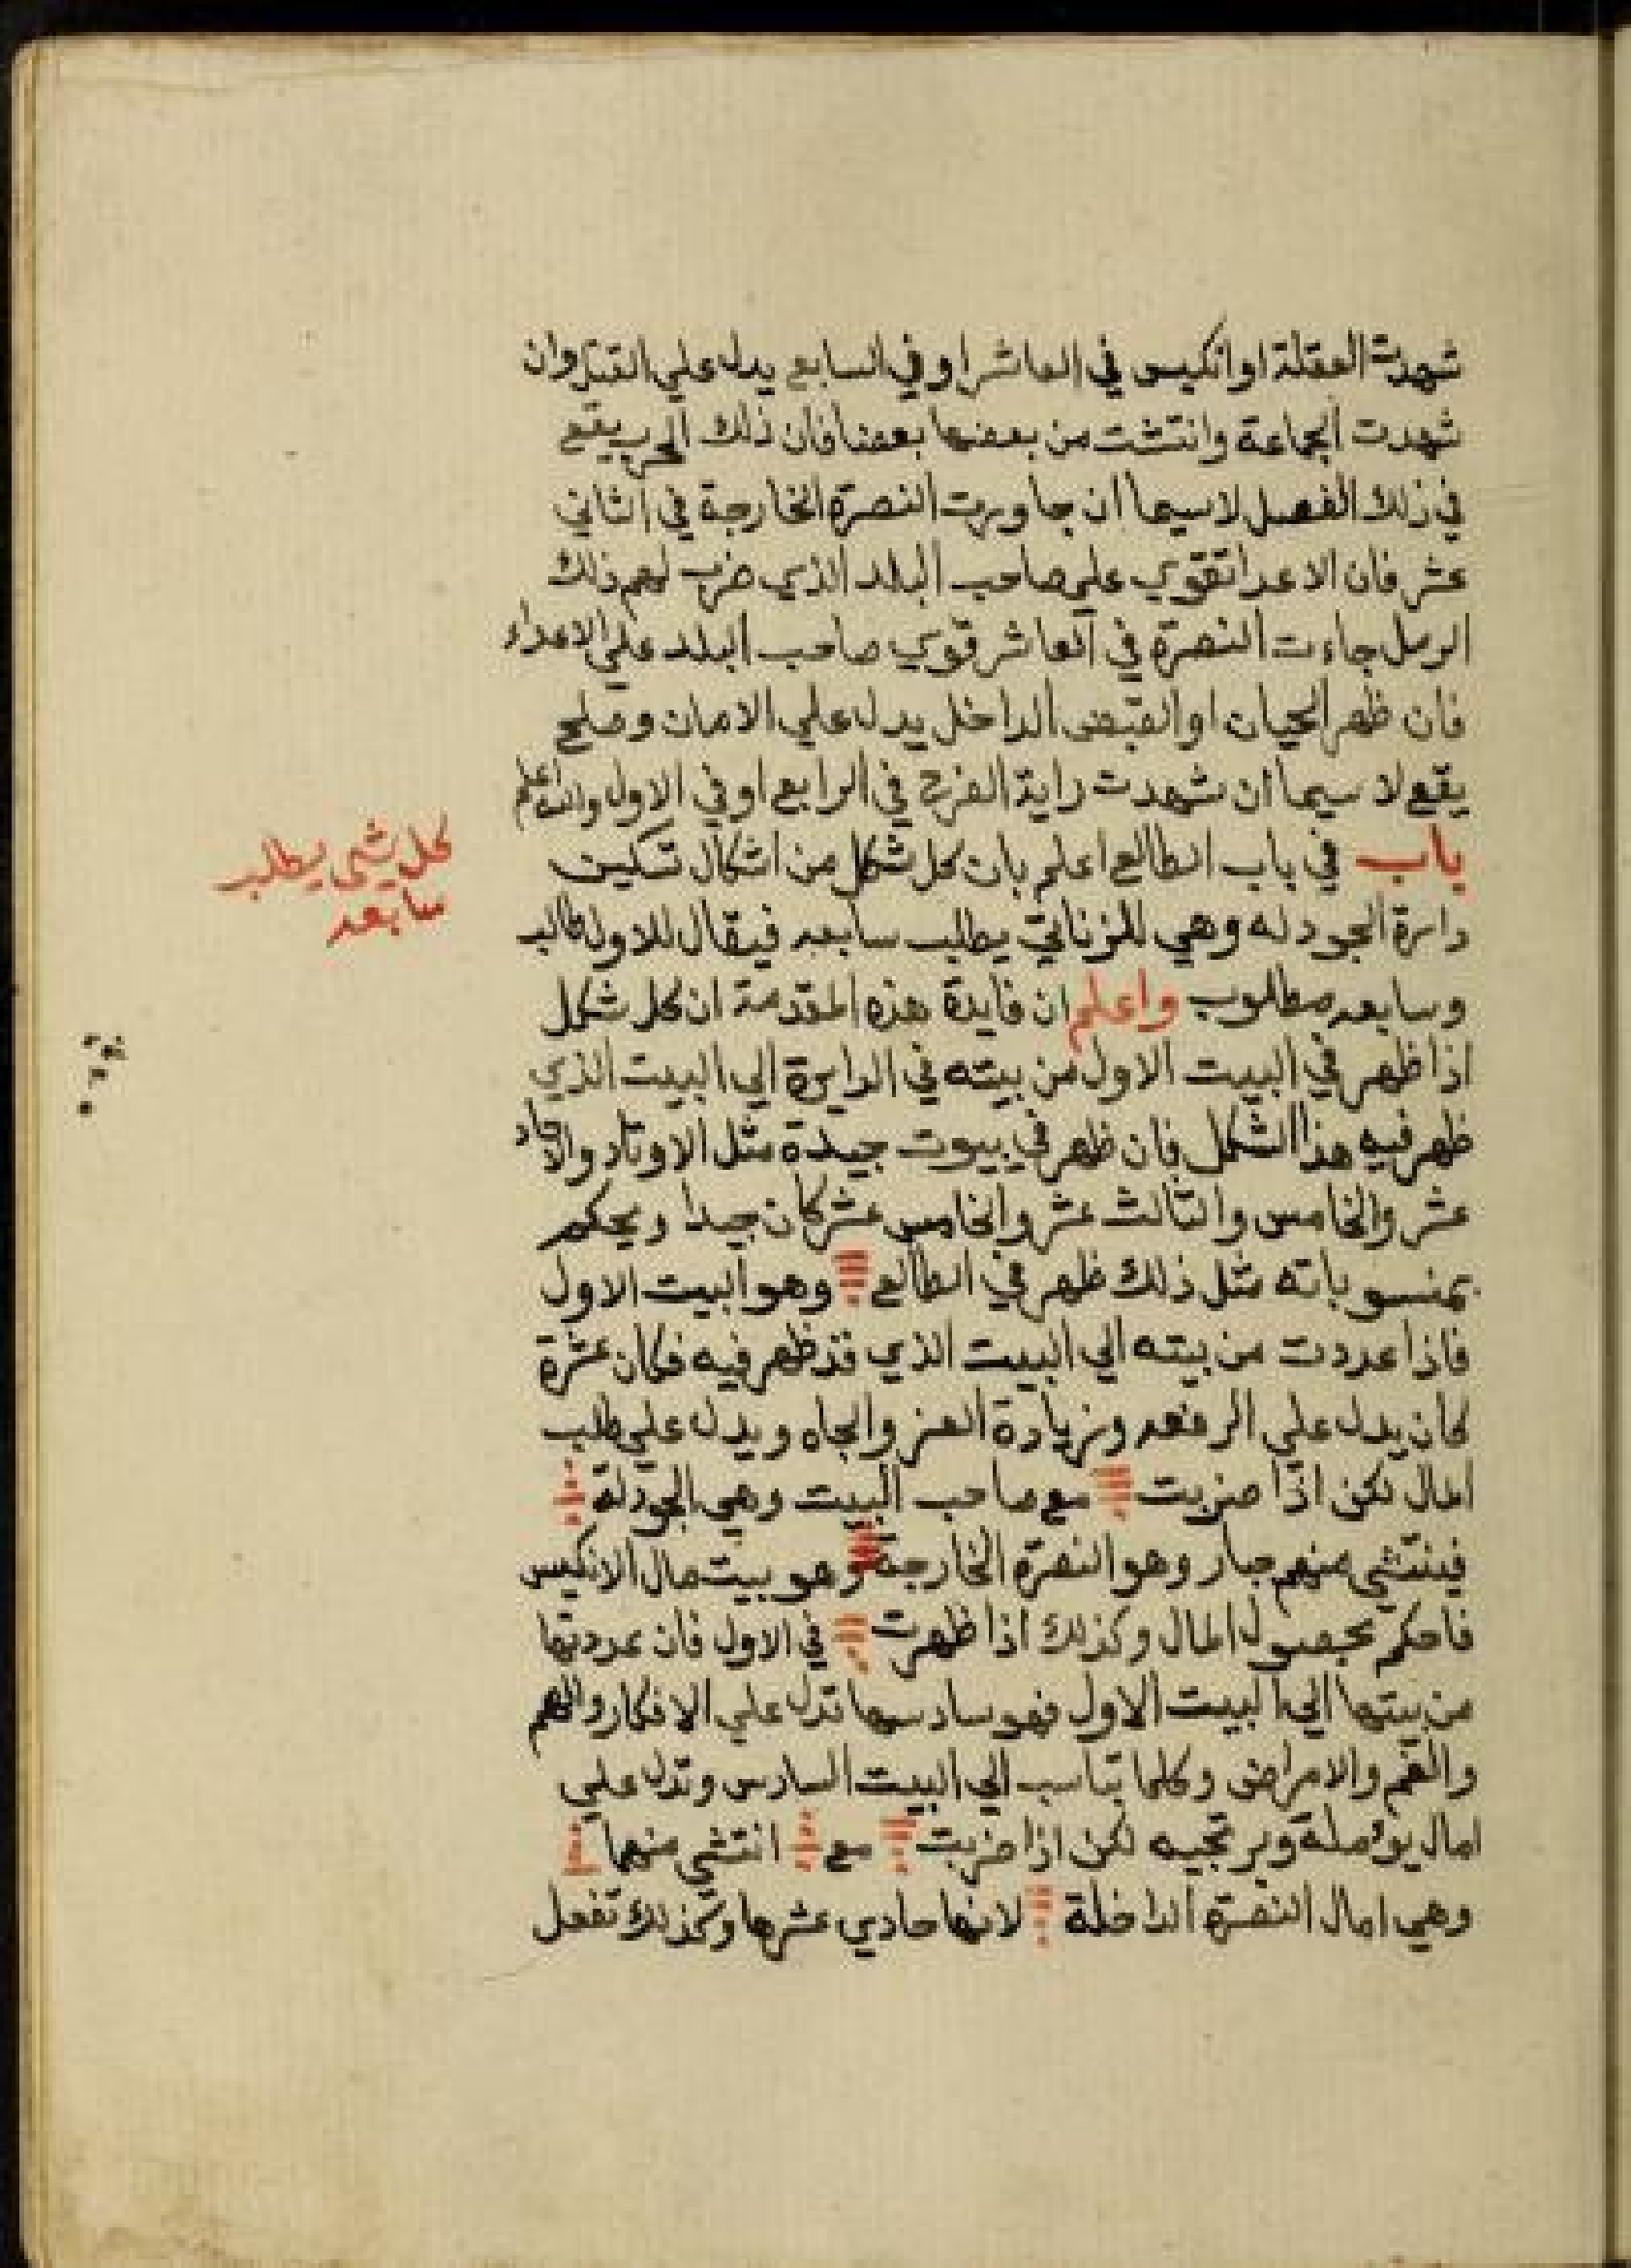 شهدت العقلة او انكيس في العاشر او في السابع يدل علي القتل وان
شهدت الجماعة وانتشت من بعضها بعضا فان ذلك الحرب يقع
في ذلك الفصل لاسيما ان جاورت النصرة الخارجة في الثاني
عشر فان الاعدا تقوي علي صاحب البلد الذي ضرب لهم ذلك
الرمل جاءت النصرة في العاشر قوي صاحب البلد علي الاعداء
فان ظهر الحيان او القبض الداخل يدل علي الامان وصلح
يقع لا سيما ان شهدت راية الفرح في الرابع او في الاول والله اعلم
باب في باب الطالع اعلم بان كل شكل من اشكال تسكين
دايرة الجودله وهي للزناتي يطلب سابعه فيقال للاول طالب
وسابعه مطلوب واعلم ان فايدة هذه المقدمة ان كل شكل
اذا ظهر في البيت الاول من بيته في الدايرة الي البيت الذي
ظهر فيه هذا الشكل فان ظهر في بيوت جيدة مثل الاوتاد والحاد
عشر والخامس والثالث عشر والخامس عشر كان جيدا ويحكم
بمنسوباته مثل ذلك ظهر في الطالع وهو البيت الاول
فاذا عددت من بيته الي البيت الذي قد ظهر فيه فكان عشرة
كان يدل علي الرفعه وزيادة العز والجاه ويدل علي طلب
المال لكن اذا ضربت مع صاحب البيت وهي الجودله
فينتشي منهم جبار وهو النصرة الخارجة وهو بيت مال الانكيس
فاحكم بحصول المال وكذلك اذا ظهرت في الاول فان عددتها
من بيتها الي البيت الاول فهو سادسها تدل علي الافكار والهم
والغم والامراض وكلما تناسب الي البيت السادس وتدل علي
امال يؤمله ويرتجيه لكن اذا ضربت مع انتشي منهما
وهي امال النصرة الداخلة لانها حادي عشرها وكذلك تفعل
كل شي يطلب
سابعه